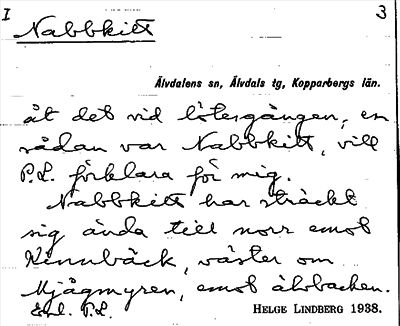 I 3
Nabbkitt
Älvdalens sn, Älvdals tg, Kopparbergs län.
åt det vid lötesgången, en
sådan var Nabbkitt, vill
P.L. förklara för mig.
Nabbkitt har sträckt
sig ända till norr emot
Kinnbäck, väster om
Mjågmyren, emot älvbacken.
Enl. P.L. HELGE LINDBERG 1938.